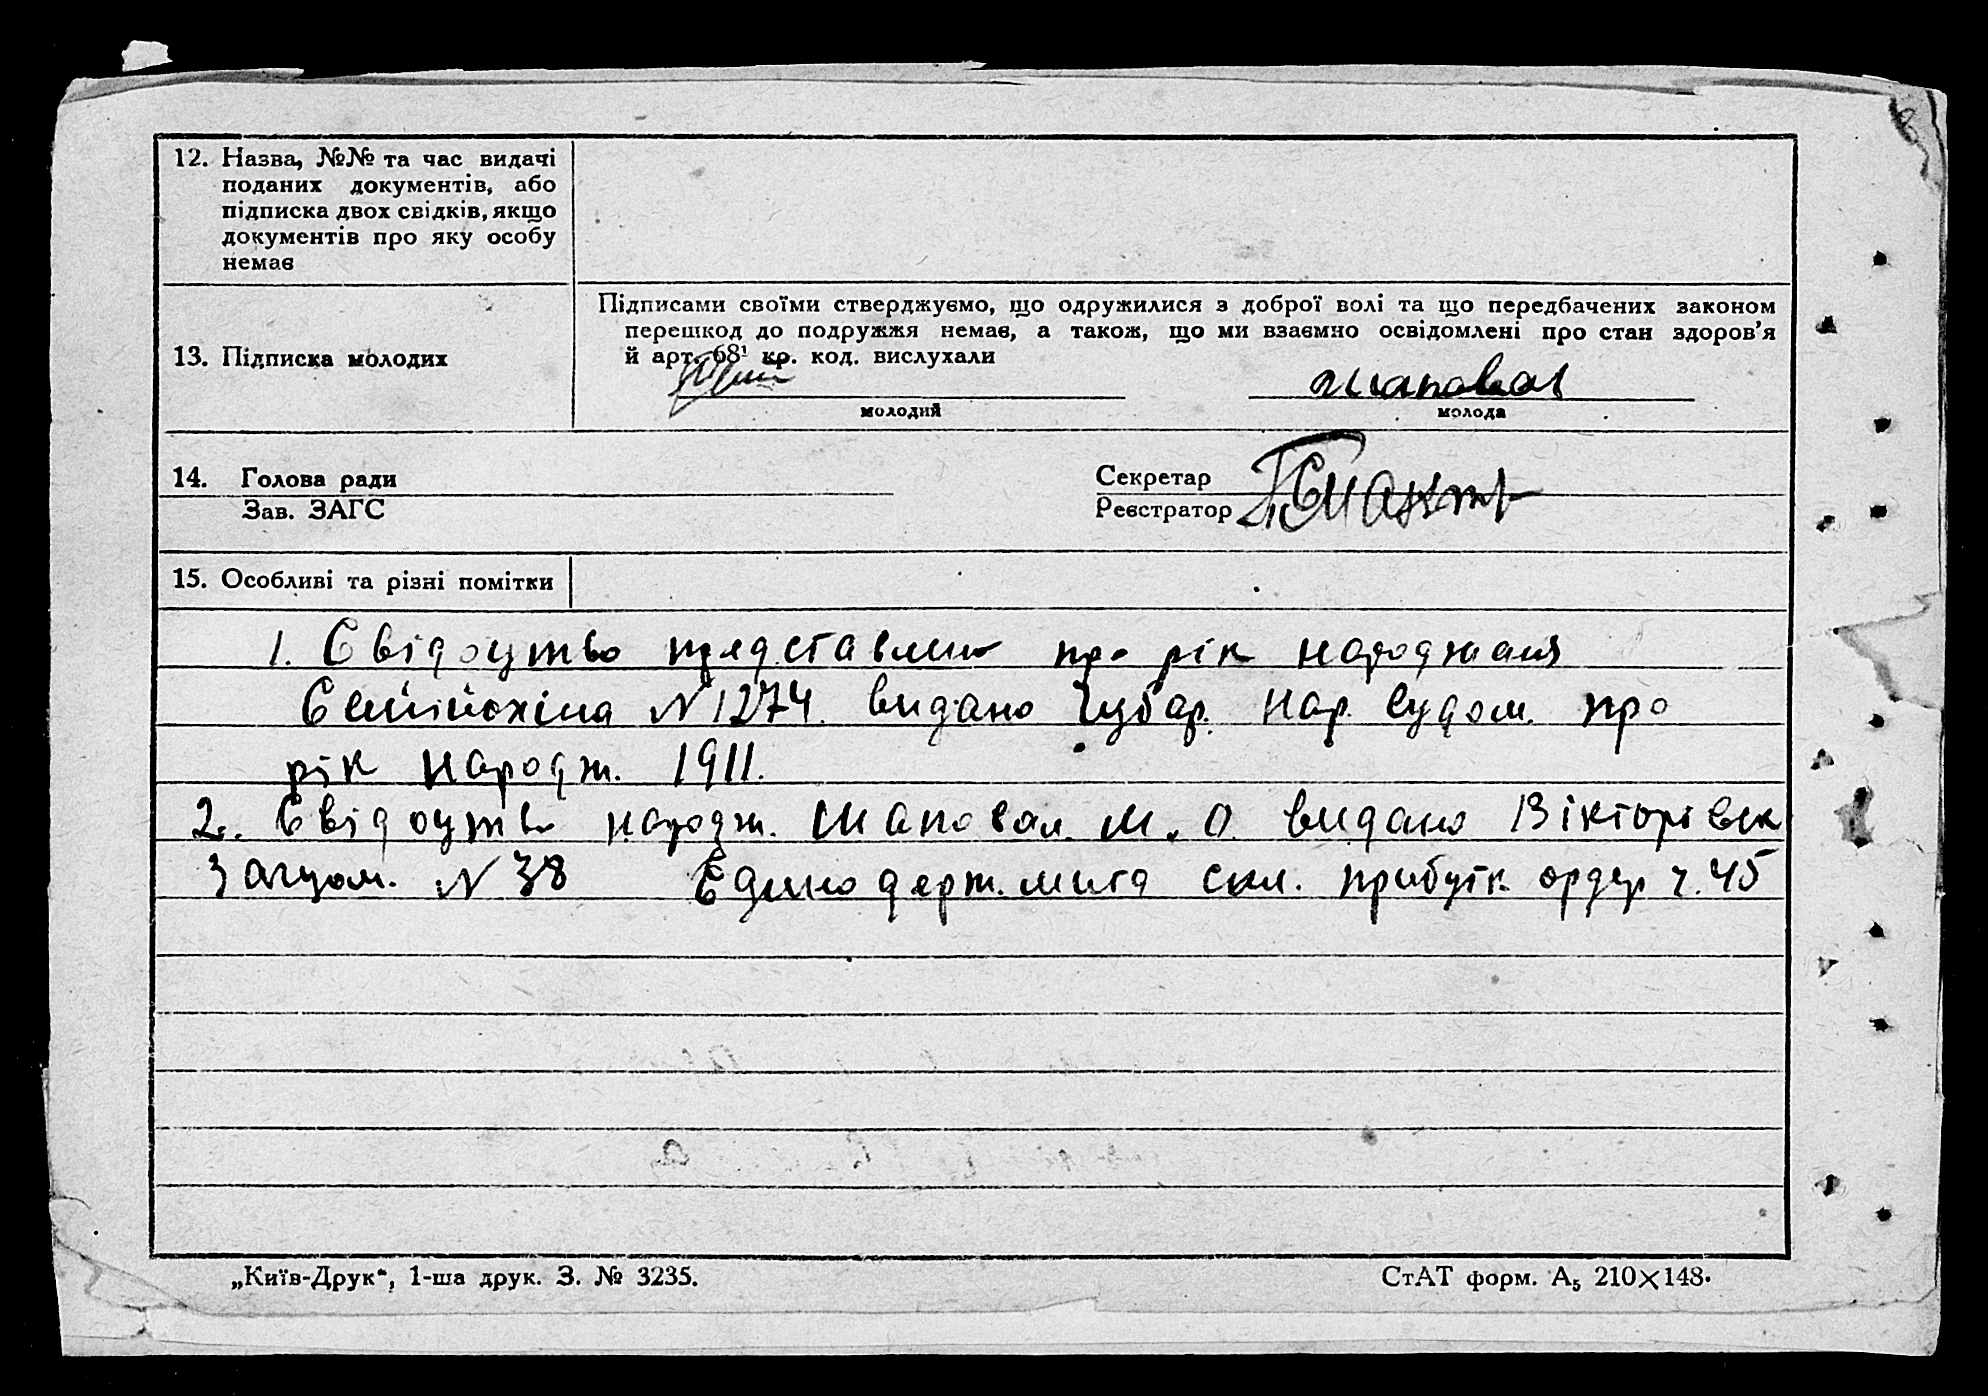 12. Назва, №№ та час видачі
поданих документів, або
підписка двох свідків, якщо
документів про яку особу
немає
13. Підписка молодих
Підписами своїми стверджуємо, що одружилися з доброї волі та що передбачених законом
перешкод до подружжя немає, а також, що ми взаємно освідомлені про стан здоров'я
й арт. 68¹ кр. код. вислухали
молодий
Шаповал
молода
14. Голова ради
Зав. ЗАГС
Секретар
Реєстратор
15. Особливі та різні помітки
1. Свідоцтво представлено про рік народження
N 1274. видано Чубар. Нар. Судом. про
рік народж. 1911.
2. Свідоцтво народж. Шаповал. М. О. видано Вікторівск
Загцом. N 38 Єдино держ. мита скл. прибутк ордер ч. 45
„Київ-Друк“, 1-ша друк. З. № 3235.
СтАТ форм. А₅ 210×148.